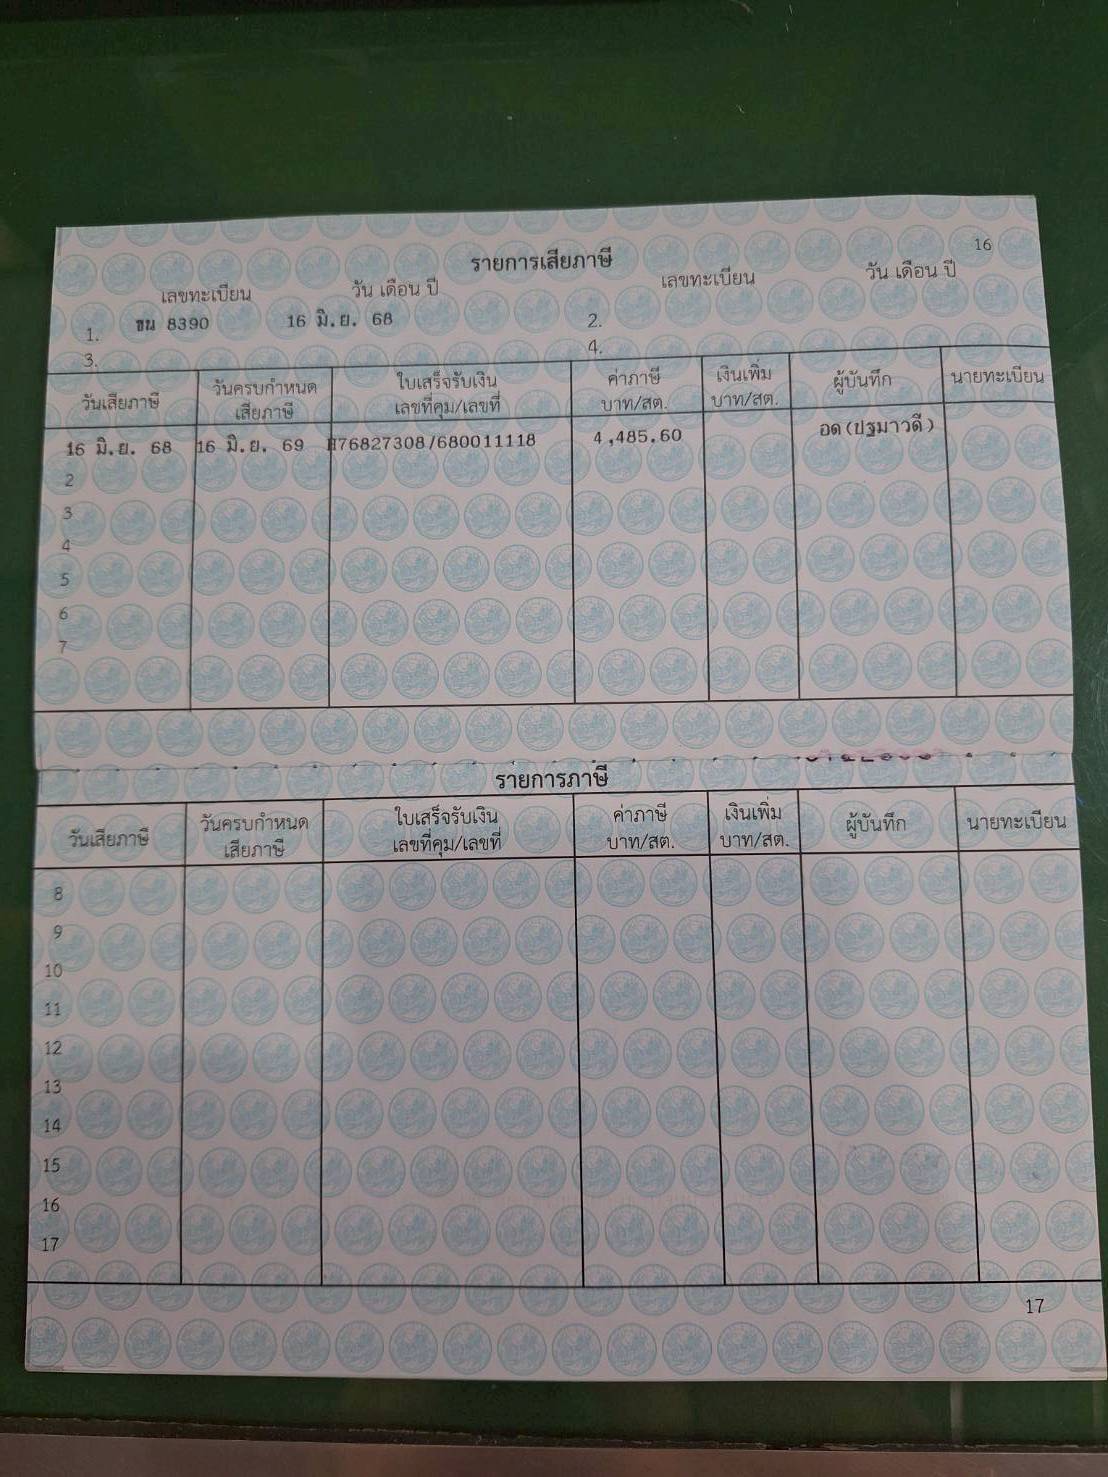 16
รายการเสียภาษี
เลขทะเบียน วัน เดือน ปี เลขทะเบียน วัน เดือน ปี
1. ขน 8390 16 มิ.ย. 68 2.
3. 4.
วันเสียภาษี วันครบกำหนด เสียภาษี ใบเสร็จรับเงิน เลขที่คุม/เลขที่ ค่าภาษี บาท/สต. เงินเพิ่ม บาท/สต. ผู้บันทึก นายทะเบียน
16 มิ.ย. 68 16 มิ.ย. 69 H76827308/680011118 4,485.60 อด(ปฐมาวดี)
2
3
4
5
6
7
รายการภาษี
วันเสียภาษี วันครบกำหนด เสียภาษี ใบเสร็จรับเงิน เลขที่คุม/เลขที่ ค่าภาษี บาท/สต. เงินเพิ่ม บาท/สต. ผู้บันทึก นายทะเบียน
8
9
10
11
12
13
14
15
16
17
17